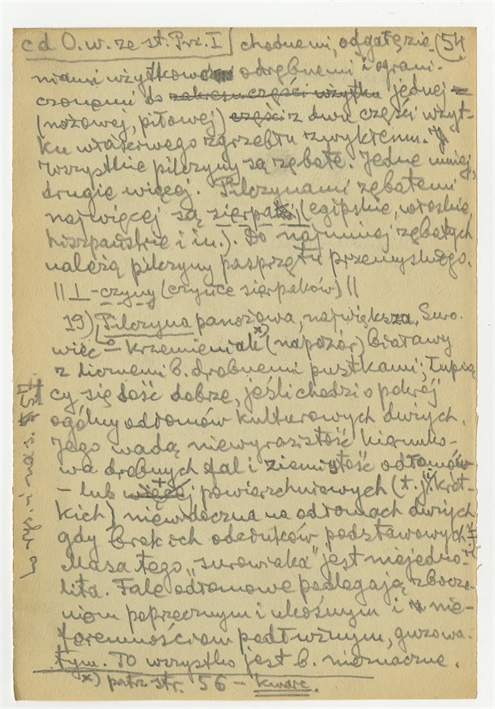 cd O.w. ze st. Prz. I chodnemi, odgałęzie- (54
niami użytkow odrębnemi i ograni-
czonemi do zakresu części użytku jednej z
(nożowej, piłowej) części z dwu części użyt-
ku właściwego zgrzebłu zwykłemu.
Wszystkie pilczyny są zębate. Jedne mniej,
drugie więcej. Pilczynami zębatemi
najwięcej są sierpaki (egipskie, włoskie,
hiszpańskie i in.). Do najmniej zębatych
należą pilczyny pasprzętu przemyskiego.
|| I - czyny (czyńce sierpaków) ||
19) Pilczyna panożowa, największa. Suro-
wiec - krzemieniak x) (napozór) białawy
z licznemi b. drobnemi pustkami, łupią-
cy się dość dobrze, jeśli chodzi o pokrój
ogólny odłomów kulturowych dużych.
Jego wadą niewyrazistość kierunko-
wa drobnych fal i ziemistość odłomów
- lub więcej powierzchniowych (t. j. krót-
kich) niewidoczna na odłamach dużych
gdy brak ich odłupków podstawowych.
Masa tego "surowiaka" jest niejedno-
lita. Fale odłomowe podlegają zbocze-
niom poprzecznym i ukośnym i nie-
foremnościom podłużnym, guzowa-
tym. To wszystko jest b. nieznaczne.
x) patrz str. 56 - kwarc.